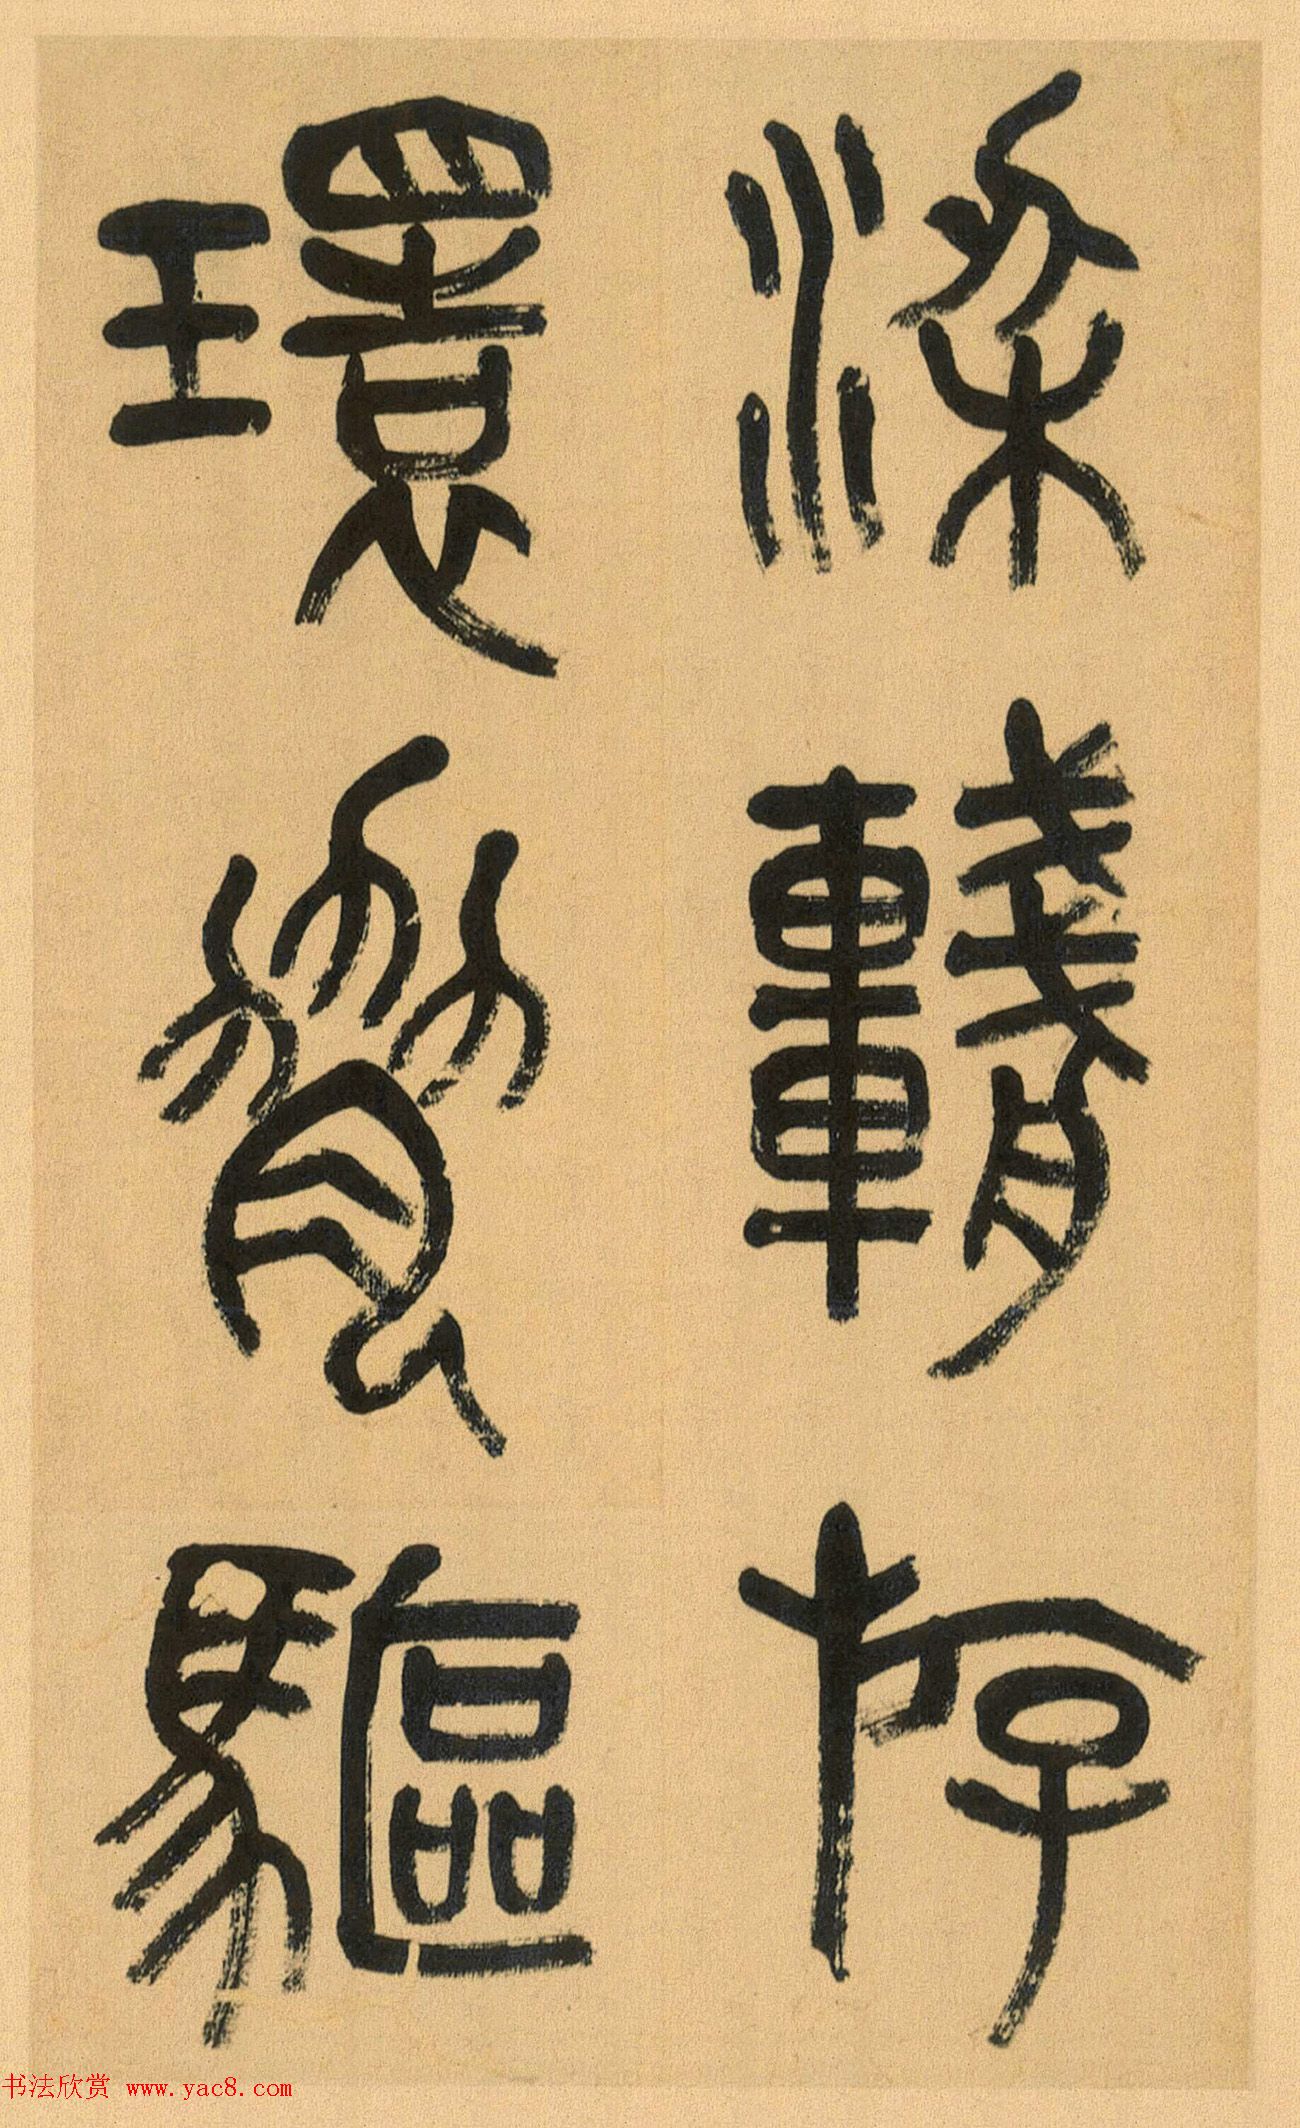 梁輈斿
環脅驅
书法欣赏 www.yac8.com